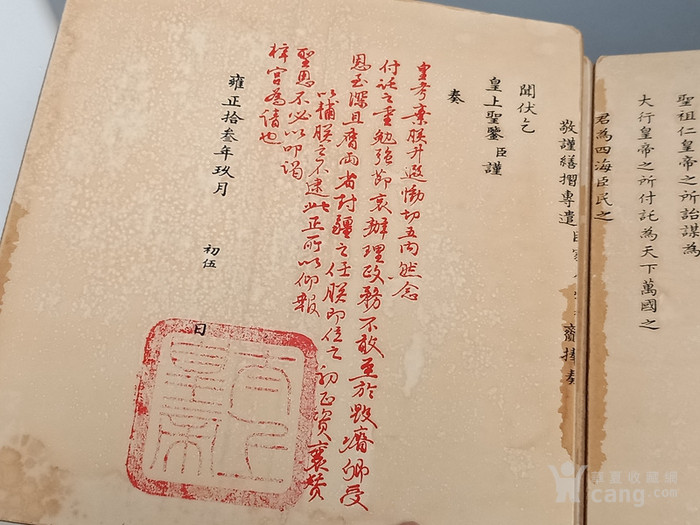 聖祖仁皇帝之所詒謀為
大行皇帝之所付託為天下萬國之
君為四海臣民之
敬謹繕摺專遣臣家齎捧奏
聞伏乞
皇上聖鑒臣謹
奏
皇考棄朕升遐慟切五內然念
付託之重勉強節哀辦理政務不敢至於毀瘠卿受
恩至深且膺兩省封疆之任朕即位之初正資襄贊
以輔朕之不逮此正所以仰報
聖恩不必以叩謁
梓宮為請也
雍正拾叁年玖月初伍日
华夏收藏网
cang.com